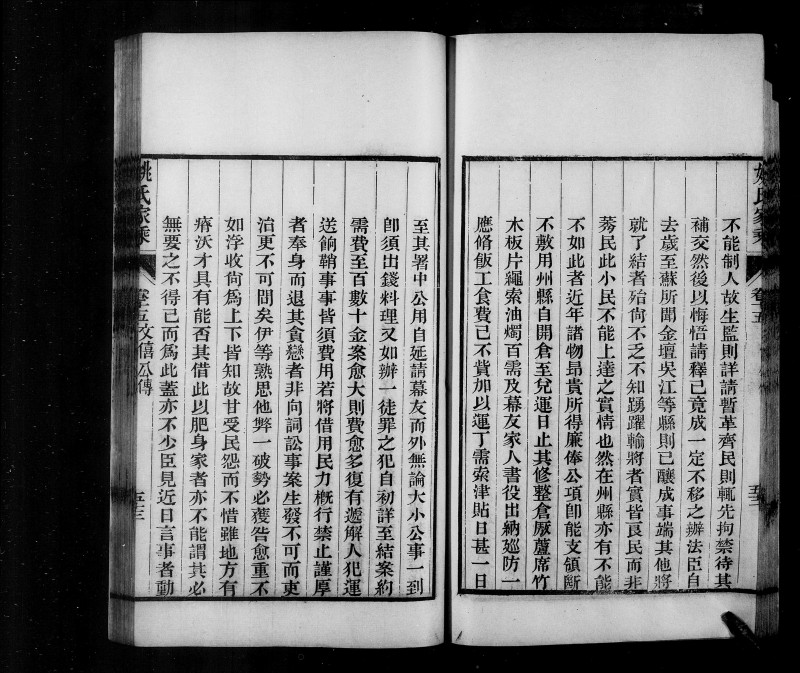 姚氏家乘
卷十五
五二
不能制人故生監則詳請暫革齊民則輒先拘禁待其
補交然後以悔悟請釋已竟成一定不移之辦法臣自
去歲至蘇所聞金壇吳江等縣則已釀成事端其他將
就了結者殆尙不乏不知踴躍輸將者實皆良民而非
莠民此小民不能上達之實情也然在州縣亦有不能
不如此者近年諸物昂貴所得廉俸公項卽能支領斷
不敷用州縣自開倉至兌運日止其修整倉廒蘆席竹
木板片繩索油燭百需及幕友家人書役出納巡防一
應脩飯工食費已不貲加以運丁需索津貼日甚一日
至其署中公用自延請幕友而外無論大小公事一到
卽須出錢料理又如辦一徒罪之犯自初詳至結案約
需費至百數十金案愈大則費愈多復有遞解人犯運
送餉鞘事事皆須費用若將借用民力槪行禁止謹厚
者奉身而退其貪戀者非向詞訟事案生發不可而吏
治更不可問矣伊等熟思他弊一破勢必獲咎愈重不
如浮收尙爲上下皆知故甘受民怨而不惜雖地方有
瘠沃才具有能否其借此以肥身家者亦不能謂其必
無要之不得已而爲此蓋亦不少臣見近日言事者動
姚氏家乘
卷十五文僖公傳
五三